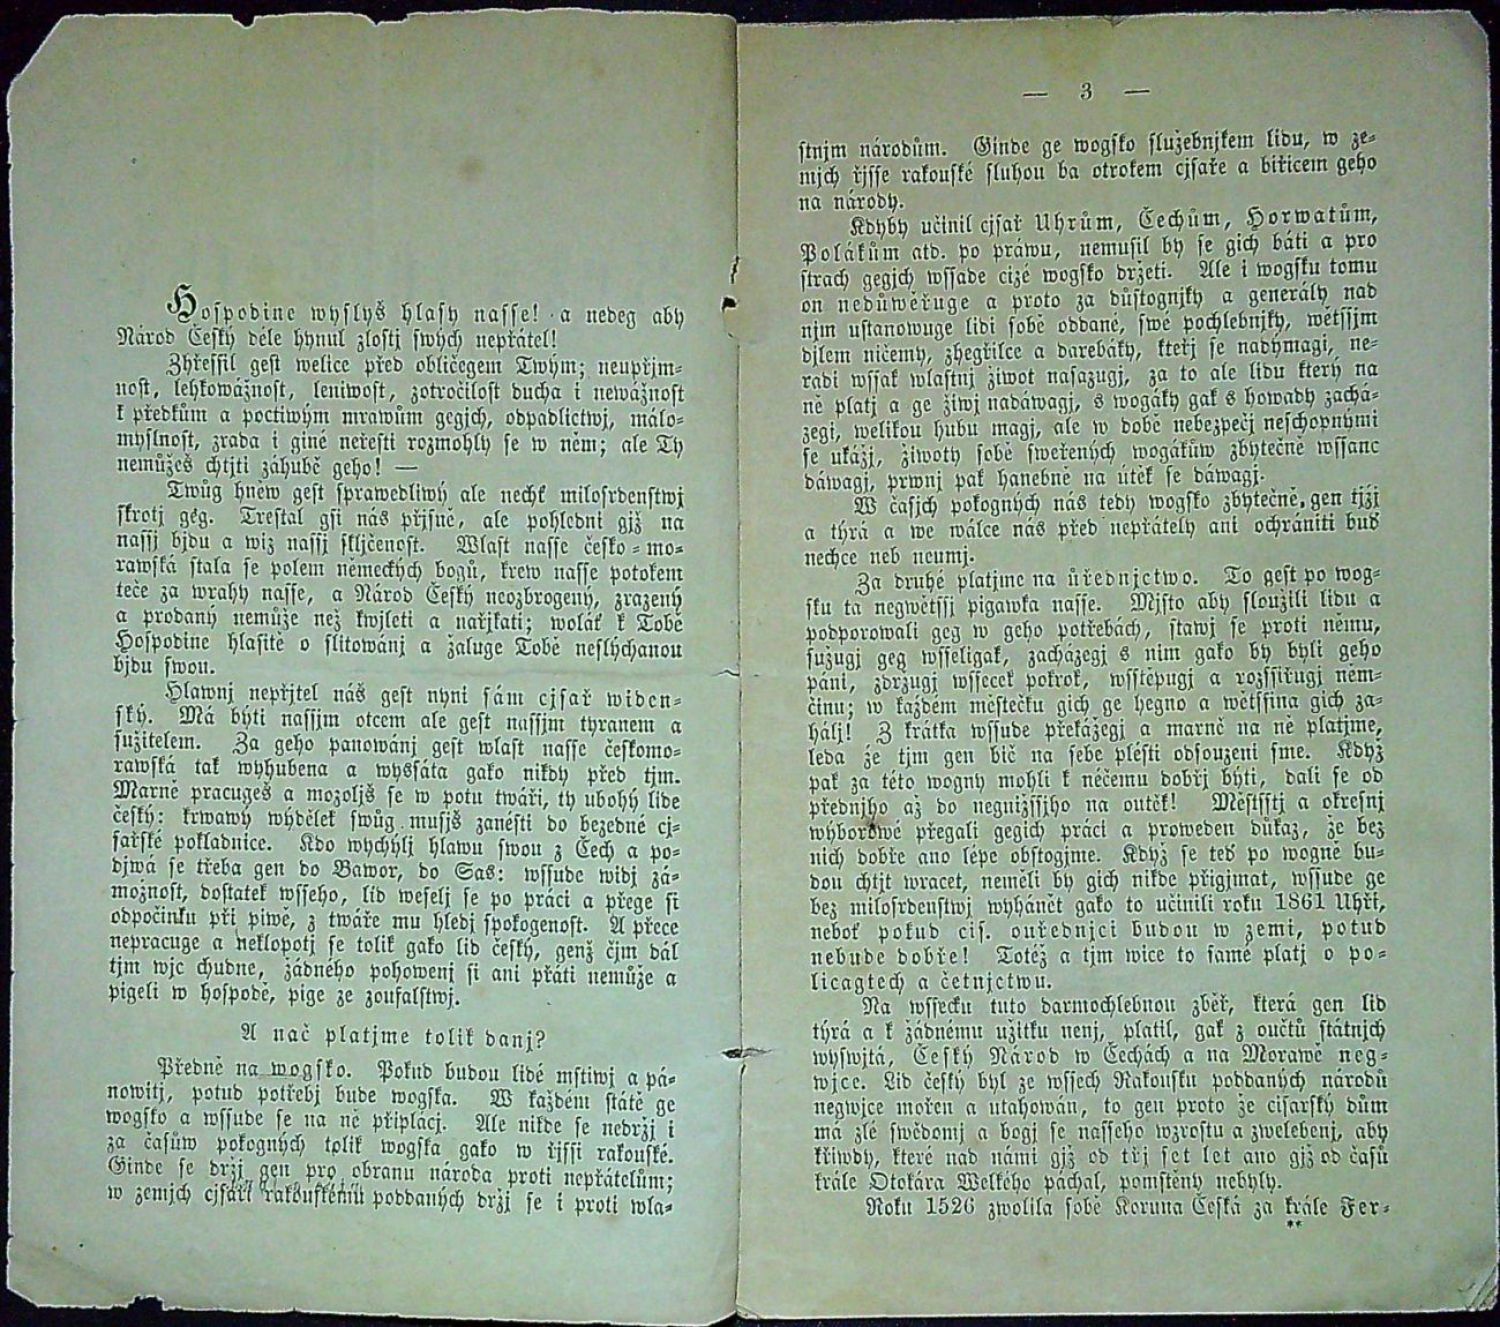 Hospodine wyslyš hlasy nasse! a nedeg aby
Národ Český déle hynul zlostj swých nepřátel!
Zhřessil gest welice před obličegem Twým; neupřjm-
nost, lehkowážnost, leniwost, zotročilost ducha i newážnost
k předkům a poctiwým mrawům gegjch, odpadlictwj, málo-
myslnost, zrada i giné neřesti rozmohly se w něm; ale Ty
nemůžeš chtjti záhubě geho! —
Twůg hněw gest sprawedliwý ale nechť milosrdenstwj
skrotj geg. Trestal gsi nás přjsně, ale pohledni giž na
nassj bjdu a wiz nassj skljčenost. Wlast nasse česko-mo-
rawská stala se polem německých bogů, krew nasse potokem
teče za wrahy nasse, a Národ Český neozbrogený, zrazený
a prodaný nemůže než kwjleti a nařjkati; woláť k Tobě
Hospodine hlasitě o slitowánj a žaluge Tobě neslýchanou
bjdu swou.
Hlawnj nepřjtel náš gest nyni sám cjsař widen-
ský. Má býti nassjm otcem ale gest nassjm tyranem a
sužitelem. Za geho panowánj gest wlast nasse českomo-
rawská tak wyhubena a wyssáta gako nikdy před tjm.
Marně pracugeš a mozoljš se w potu twáři, ty ubohý lide
český: krwawý wýdělek swůg musjš zanésti do bezedné cj-
sařské pokladnice. Kdo wychýlj hlawu swou z Čech a po-
djwá se třeba gen do Bawor, do Sas: wssude widj zá-
možnost, dostatek wsseho, lid weselj se po práci a přege si
odpočinku při piwě, z twáře mu hledj spokogenost. A přece
nepracuge a neklopotj se tolik gako lid český, genž čjm dál
tjm wjc chudne, žádného pohowenj si ani přáti nemůže a
pigeli w hospodě, pige ze zoufalstwj.
A nač platjme tolik danj?
Předně na wogsko. Pokud budou lidé mstiwj a pá-
nowitj, potud potřebj bude wogska. W každém státě ge
wogsko a wssude se na ně připlácj. Ale nikde se nedržj i
za časůw pokogných tolik wogska gako w řjssi rakouské.
Ginde se držj gen pro obranu národa proti nepřátelům;
w zemjch cjsaři rakouskému poddaných držj se i proti wla-
— 3 —
stnjm národům. Ginde ge wogsko služebnjkem lidu, w ze-
mjch řjsse rakouské sluhou ba otrokem cjsaře a biřicem geho
na národy.
Kdyby učinil cjsař Uhrům, Čechům, Horwatům,
Polákům atd. po práwu, nemusil by se gich báti a pro
strach gegjch wssade cizé wogsko držeti. Ale i wogsku tomu
on nedůwěřuge a proto za důstognjky a generály nad
njm ustanowuge lidi sobě oddané, swé pochlebnjky, wětssjm
djlem ničemy, zhegřilce a darebáky, kteřj se nadýmagi, ne-
radi wssak wlastnj žiwot nasazugj, za to ale lidu který na
ně platj a ge žiwj nadáwagj, s wogáky gak s howady zachá-
zegi, welikou hubu magj, ale w době nebezpečj neschopnými
se ukážj, žiwoty sobě swěřených wogákůw zbytečně wssanc
dáwagj, prwnj pak hanebně na útěk se dáwagj.
W časjch pokogných nás tedy wogsko zbytečně gen tjžj
a týrá a we wálce nás před nepřátely ani ochrániti buď
nechce neb neumj.
Za druhé platjme na úřednjctwo. To gest po wog-
sku ta negwětssj pigawka nasse. Mjsto aby sloužili lidu a
podporowali geg w geho potřebách, stawj se proti němu,
sužugj geg wsseligak, zacházegj s nim gako by byli geho
páni, zdržugj wssecek pokrok, wsstěpugj a rozssiřugj něm-
činu; w každém městečku gich ge hegno a wětssina gich za-
hálj! Z krátka wssude překážegj a marně na ně platjme,
leda že tjm gen bič na sebe plésti odsouzeni sme. Když
pak za této wogny mohli k něčemu dobřj býti, dali se od
přednjho až do negnižssjho na outěk! Městsstj a okresnj
wýborowé přegali gegich práci a proweden důkaz, že bez
nich dobře ano lépe obstogjme. Když se teď po wogně bu-
dou chtjt wracet, neměli by gich nikde přigjmat, wssude ge
bez milosrdenstwj wyhánět gako to učinili roku 1861 Uhři,
neboť pokud cis. ouřednjci budou w zemi, potud
nebude dobře! Totéž a tjm wice to samé platj o po-
licagtech a četnjctwu.
Na wssecku tuto darmochlebnou zběř, která gen lid
týrá a k žádnému užitku nenj, platil, gak z oučtů státnjch
wyswjtá, Český Národ w Čechách a na Morawě neg-
wjce. Lid český byl ze wssech Rakousku poddaných národů
negwjce mořen a utahowán, to gen proto že cisarský dům
má zlé swědomj a bogj se nasseho wzrostu a zwelebenj, aby
křiwdy, které nad námi giž od třj set let ano giž od časů
krále Otokára Welkého páchal, pomstěny nebyly.
Roku 1526 zwolila sobě Koruna Česká za krále Fer-
**